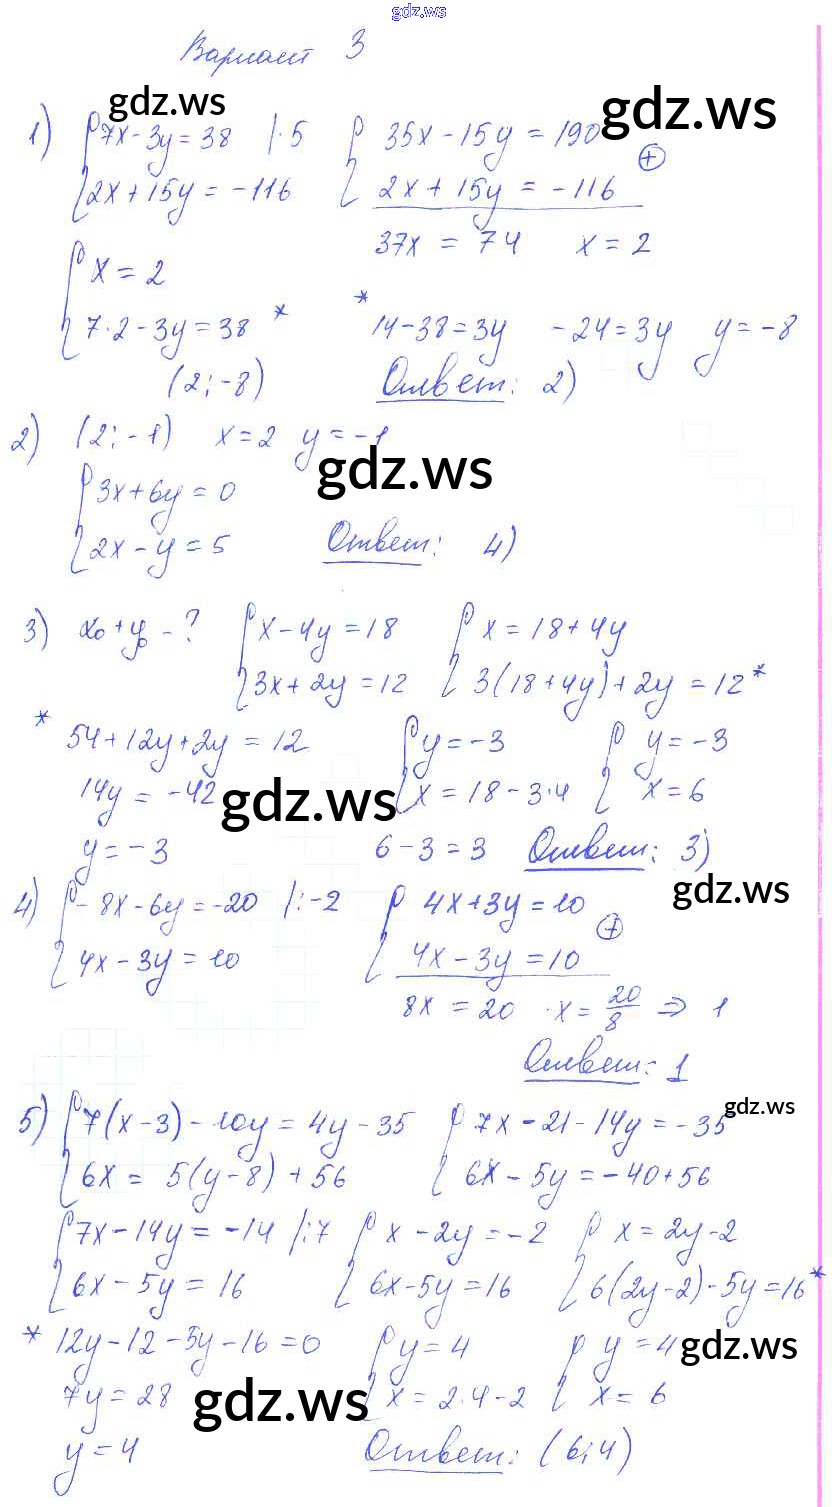 gdz.ws
Вариант 3
gdz.ws gdz.ws
1) { 7x - 3y = 38 | · 5 { 35x - 15y = 190
2x + 15y = -116 2x + 15y = -116 (+)
37x = 74 x = 2
{ x = 2
7 · 2 - 3y = 38 * * 14 - 38 = 3y -24 = 3y y = -8
(2; -8) Ответ: 2)
2) (2; -1) x = 2 y = -1
gdz.ws
{ 3x + 6y = 0
2x - y = 5 Ответ: 4)
3) x₀ + y₀ - ? { x - 4y = 18 { x = 18 + 4y
3x + 2y = 12 3(18 + 4y) + 2y = 12 *
* 54 + 12y + 2y = 12 { y = -3 { y = -3
14y = -42 x = 18 - 3 · 4 x = 6
gdz.ws
y = -3 6 - 3 = 3 Ответ: 3)
gdz.ws
4) { -8x - 6y = -20 | : -2 { 4x + 3y = 10
4x - 3y = 10 4x - 3y = 10 (+)
8x = 20 · x = 20/8 => 1
Ответ: 1
gdz.ws
5) { 7(x - 3) - 10y = 4y - 35 { 7x - 21 - 14y = -35
6x = 5(y - 8) + 56 6x - 5y = -40 + 56
{ 7x - 14y = -14 | : 7 { x - 2y = -2 { x = 2y - 2
6x - 5y = 16 6x - 5y = 16 6(2y - 2) - 5y = 16 *
* 12y - 12 - 5y - 16 = 0 { y = 4 { y = 4
gdz.ws
7y = 28 x = 2 · 4 - 2 x = 6
gdz.ws
y = 4 Ответ: (6; 4)